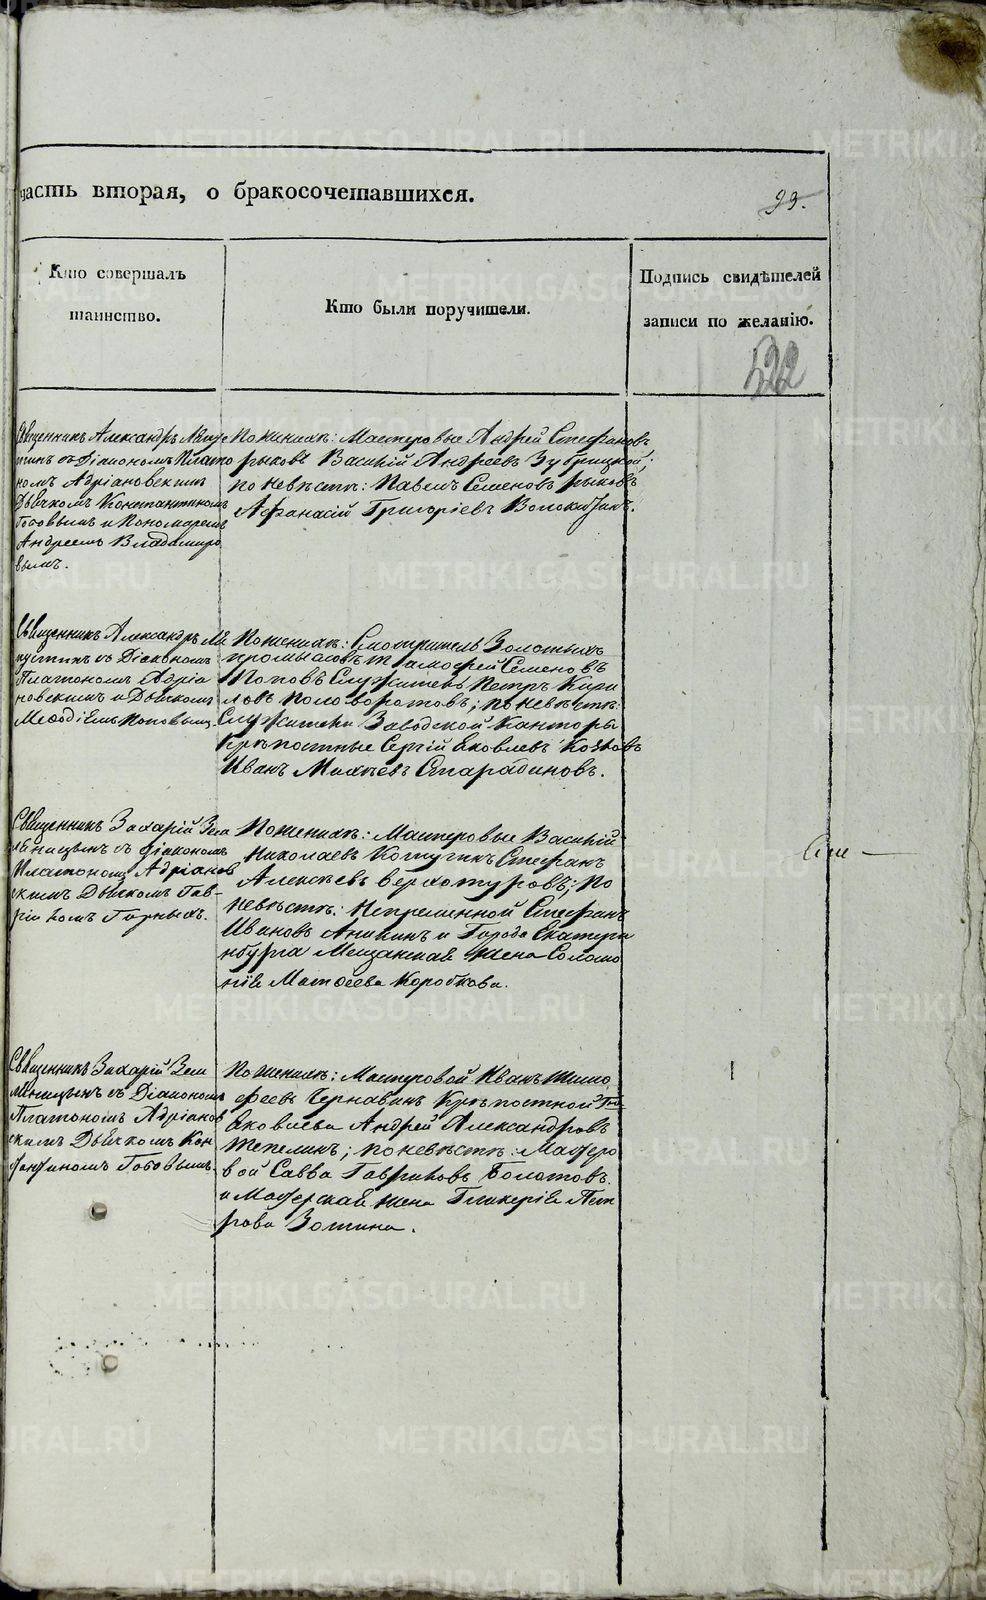 часть вторая, о бракосочетавшихся.
99.
Кто совершалъ
таинство.
Кто были поручители.
Подпись свидѣтелей
записи по желанію.
522
Священникъ Александръ
съ Діакономъ Плато
номъ Адріановскимъ
Дьячкомъ Константиномъ
и Пономаремъ
Андреемъ Владимиро
вымъ.
По женихѣ: Мастеровые Андрей Стефановъ
Рыковъ Василій Андреевъ Зубрицкой;
по невѣстѣ: Павелъ Семеновъ Рыковъ
Афанасій Григоріевъ Волокитинъ.
Священникъ Александръ
съ Діакономъ
Платономъ Адріа
новскимъ и Дьячкомъ
Меѳодіемъ Поповымъ.
По женихѣ: Смотритель Золотыхъ
промысловъ Тимофей Семеновъ
Поповъ Служитель Петръ Кири
ловъ Половоротовъ; по невѣстѣ:
Служители Заводской Канторы
Крѣпостные Сергій Яковлевъ
Иванъ Михѣевъ
Священникъ Захарій Зем
ляницынъ съ Діакономъ
Платономъ Адріанов
скимъ Дьячкомъ Гав
ріиломъ Горныхъ.
По женихѣ: Мастеровые Василій
Николаевъ Стефанъ
Алексѣевъ Верхотуровъ; по
невѣстѣ: Непременной Стефанъ
Ивановъ Аникинъ и Города Екатери
нбурга Мещанская жена Соломо
нія Матѳеева Коробкова.
Священникъ Захарій Зем
ляницынъ съ Діакономъ
Платономъ Адріанов
скимъ Дьячкомъ Кон
стантиномъ
По женихѣ: Мастеровой Иванъ Тимо
феевъ Чернавинъ Крѣпостной
Яковлева Андрей Александровъ
Тепелинъ; по невѣстѣ: Мастеро
вой Савва Гавриловъ Болотовъ
и Мастерская жена Гликерія Пет
рова Зотина.
METRIKI.GASO-URAL.RU